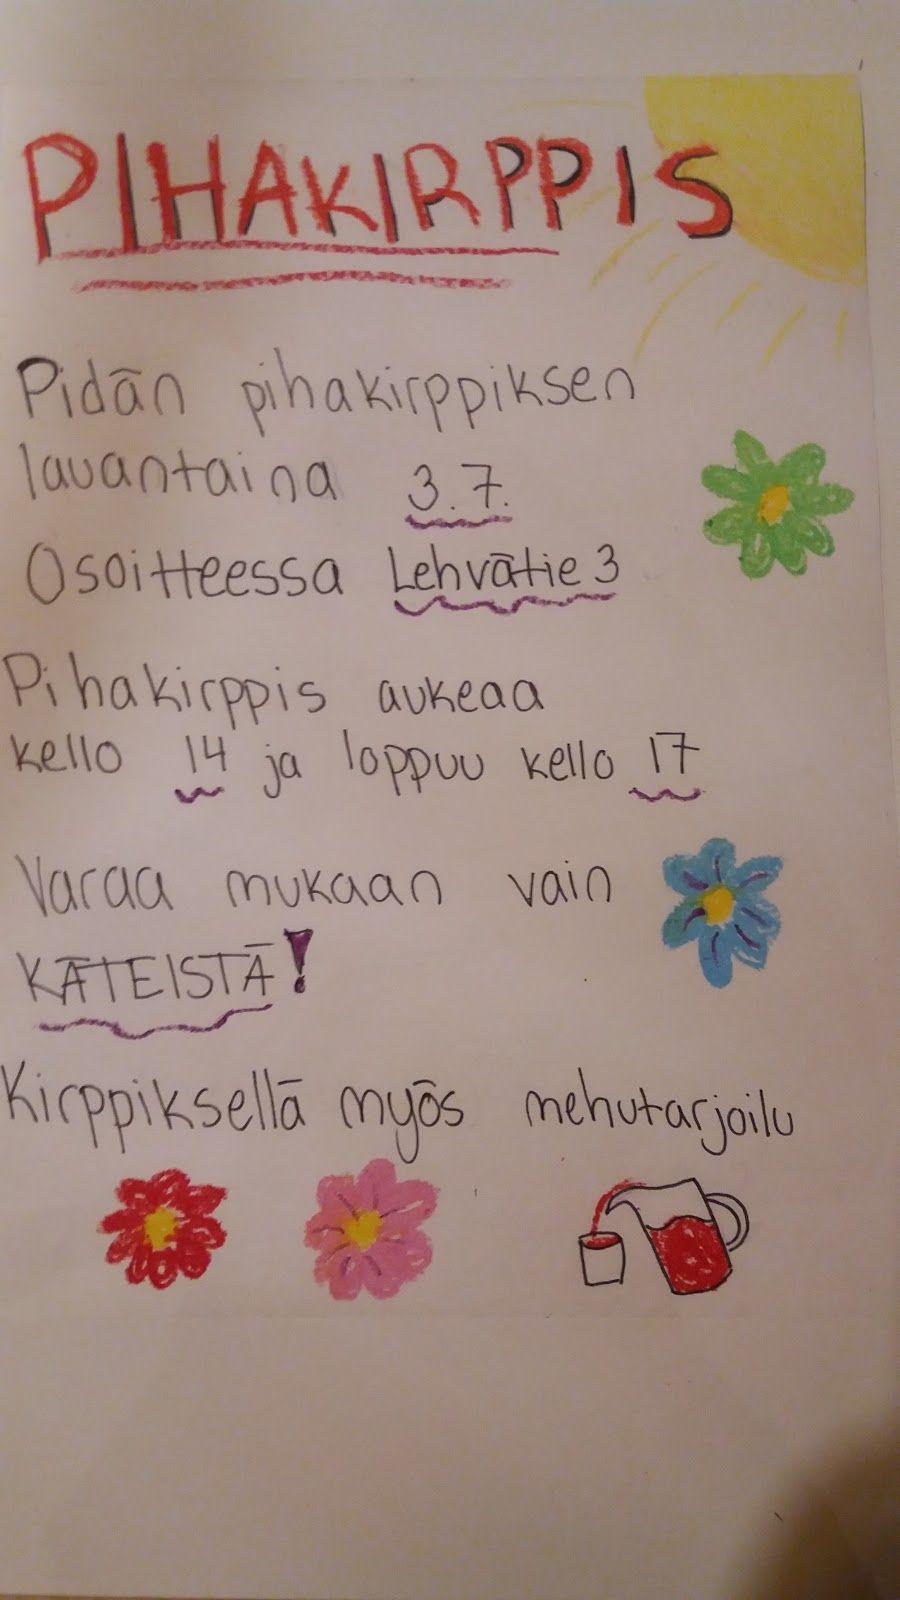 PIHAKIRPPIS
Pidän pihakirppiksen
lauantaina 3.7.
Osoitteessa Lehvätie 3
Pihakirppis aukeaa
kello 14 ja loppuu kello 17
Varaa mukaan vain
KÄTEISTÄ!
Kirppiksellä myös mehutarjoilu